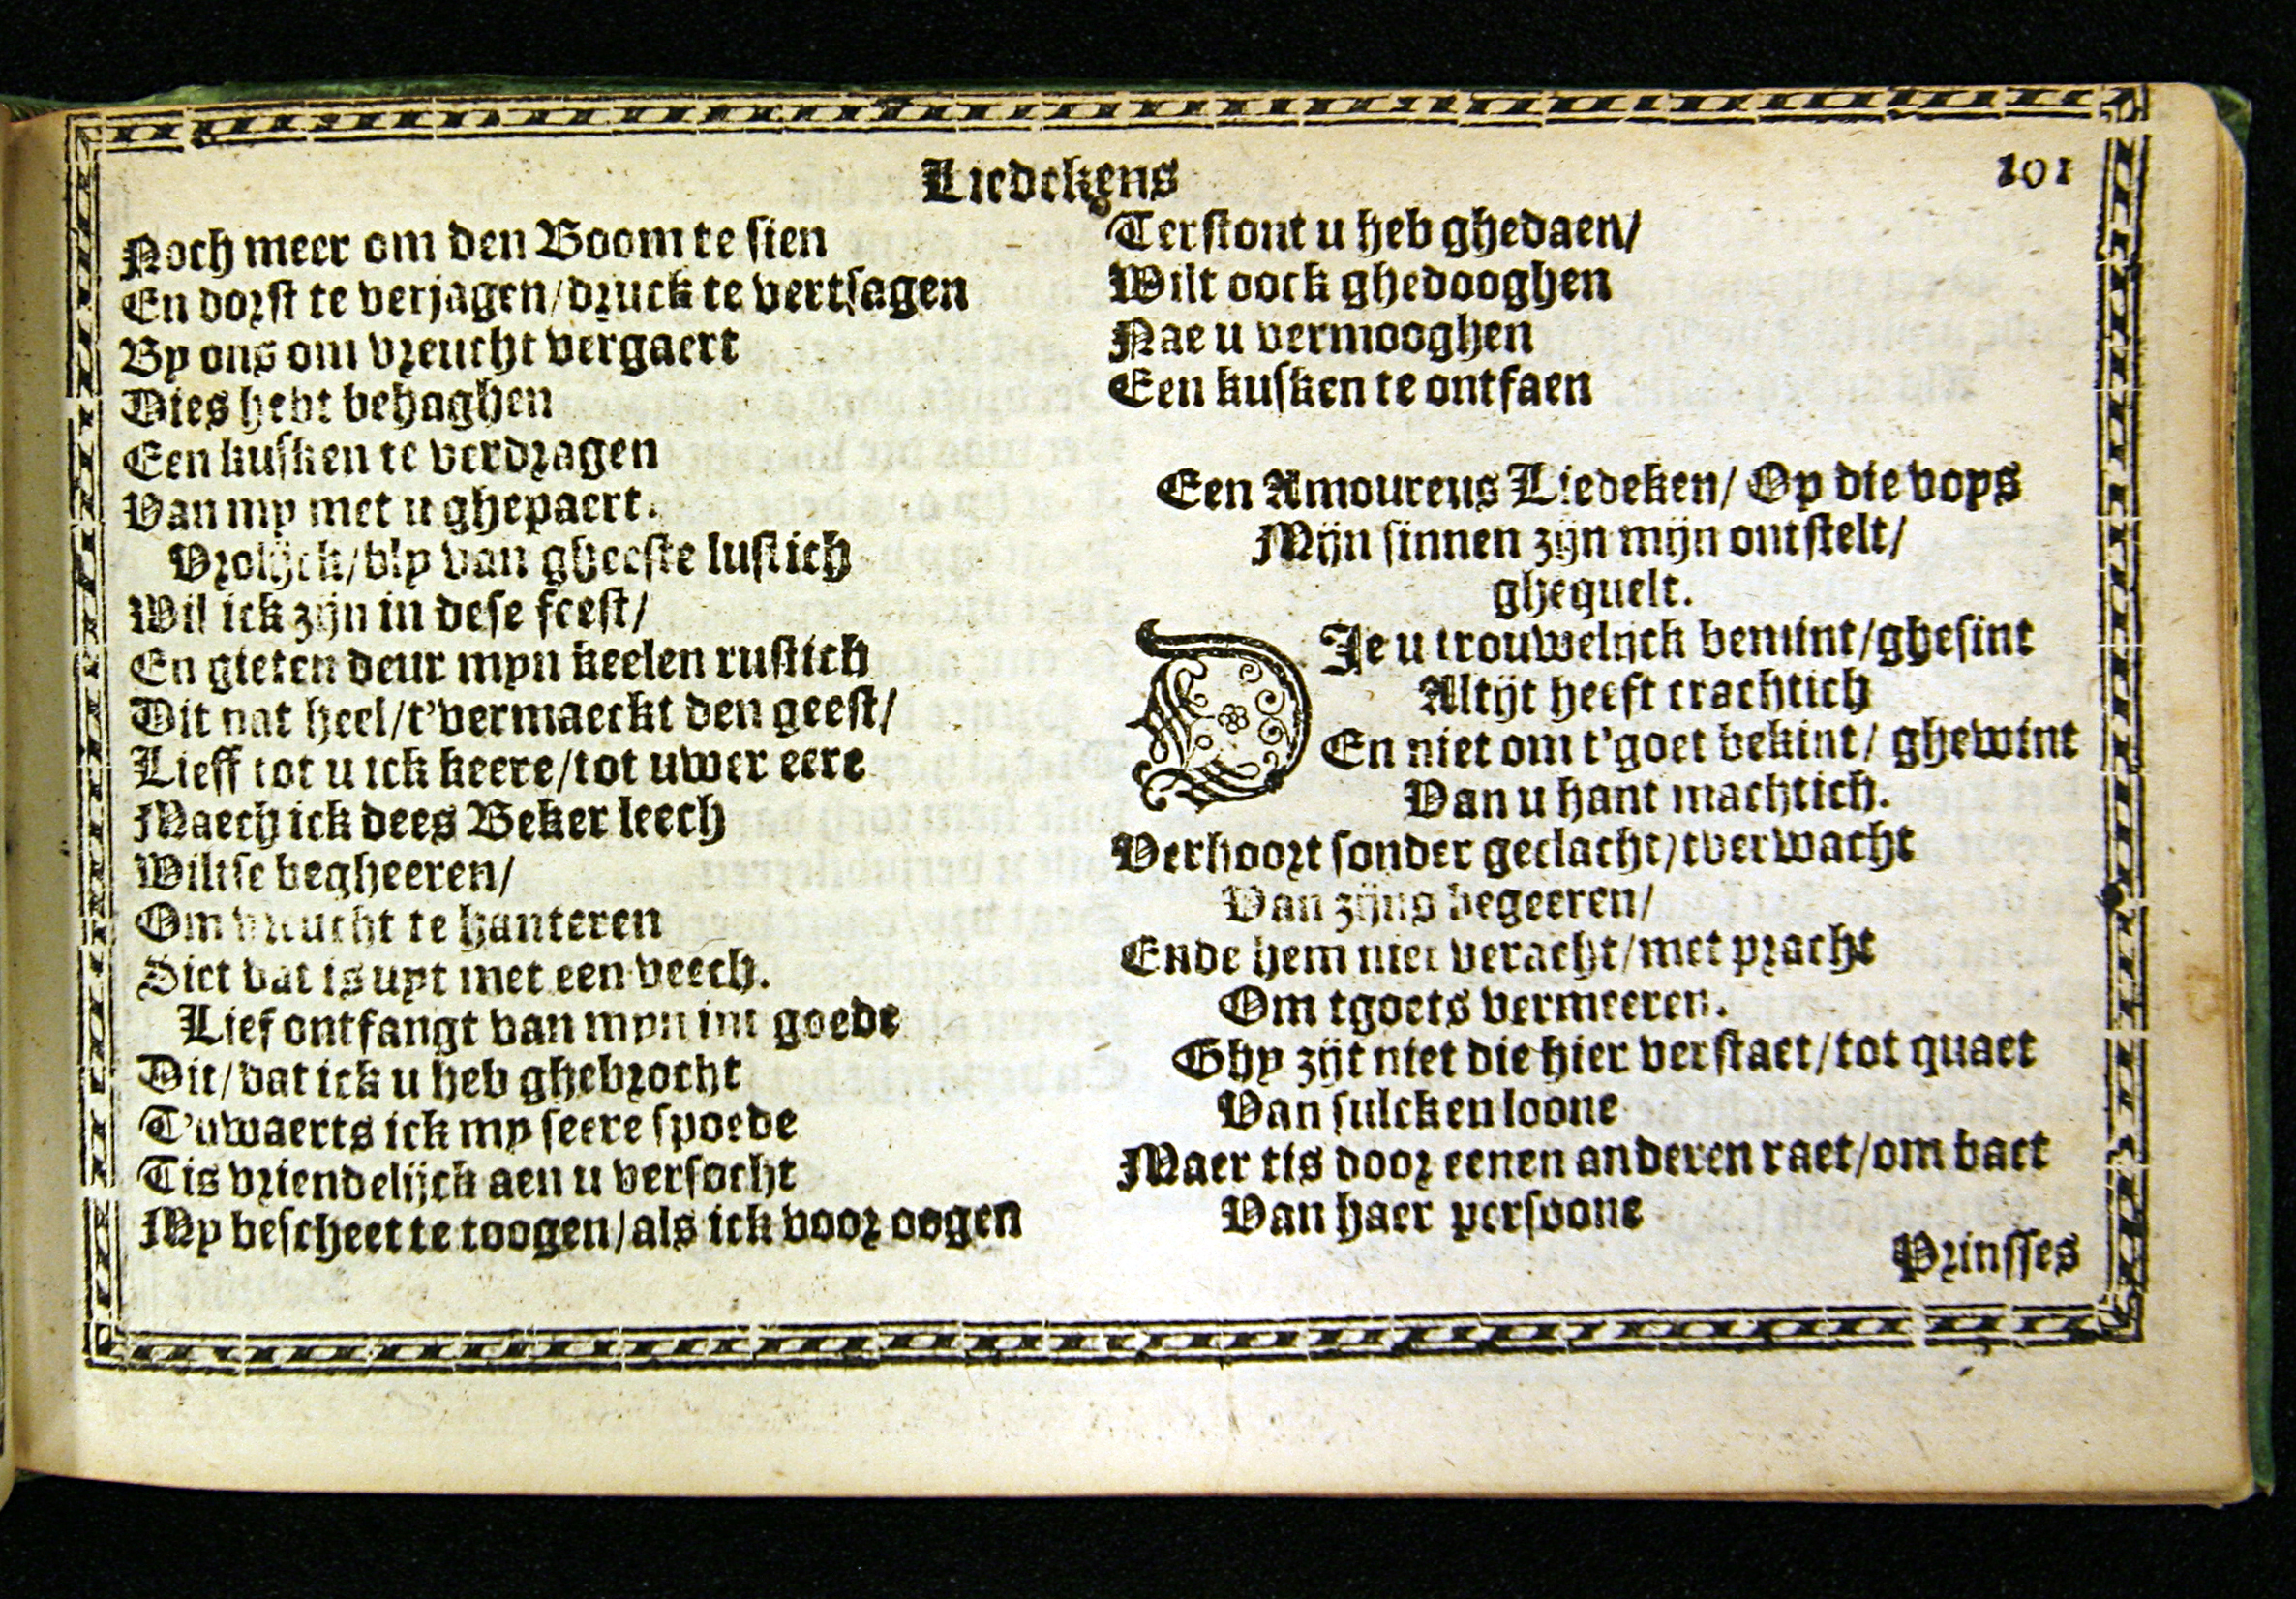 Liedekens
101
Noch meer om den Boom te sien
En dorst te verjagen/druck te vertsagen
By ons om vreucht vergaert
Dies hebt behaghen
Een kusken te verdragen
Van my met u ghepaert.
Vrolijck/bly van gheeste lustich
Wil ick zijn in dese feest/
En gieten deur myn keelen rustich
Dit nat heel/t'vermaeckt den geest/
Lieff tot u ick keere/tot uwer eere
Maech ick dees Beker leech
Wiltse begheeren/
Om vreucht te hanteren
Siet dat is uyt met een veech.
Lief ontfangt van myn int goede
Dit/dat ick u heb ghebrocht
T'uwaerts ick my seere spoede
Tis vriendelijck aen u versocht
My bescheet te toogen/als ick voor oogen
Terstont u heb ghedaen/
Wilt oock ghedooghen
Nae u vermooghen
Een kusken te ontfaen
Een Amoureus Liedeken/ Op die voys
Mijn sinnen zijn mijn ontstelt/
ghequelt.
DIe u trouwelijck bemint/ghesint
Altijt heeft trachtich
En niet om t'goet bekint/ ghewint
Van u hant machtich.
Verhoort sonder geclacht/tverwacht
Van zijns begeeren/
Ende hem niet veracht/met pracht
Om tgoets vermeeren.
Ghy zijt niet die hier verstaet/tot quaet
Van sulcken loone
Maer tis door eenen anderen raet/om baet
Van haer persoone
Prinsses